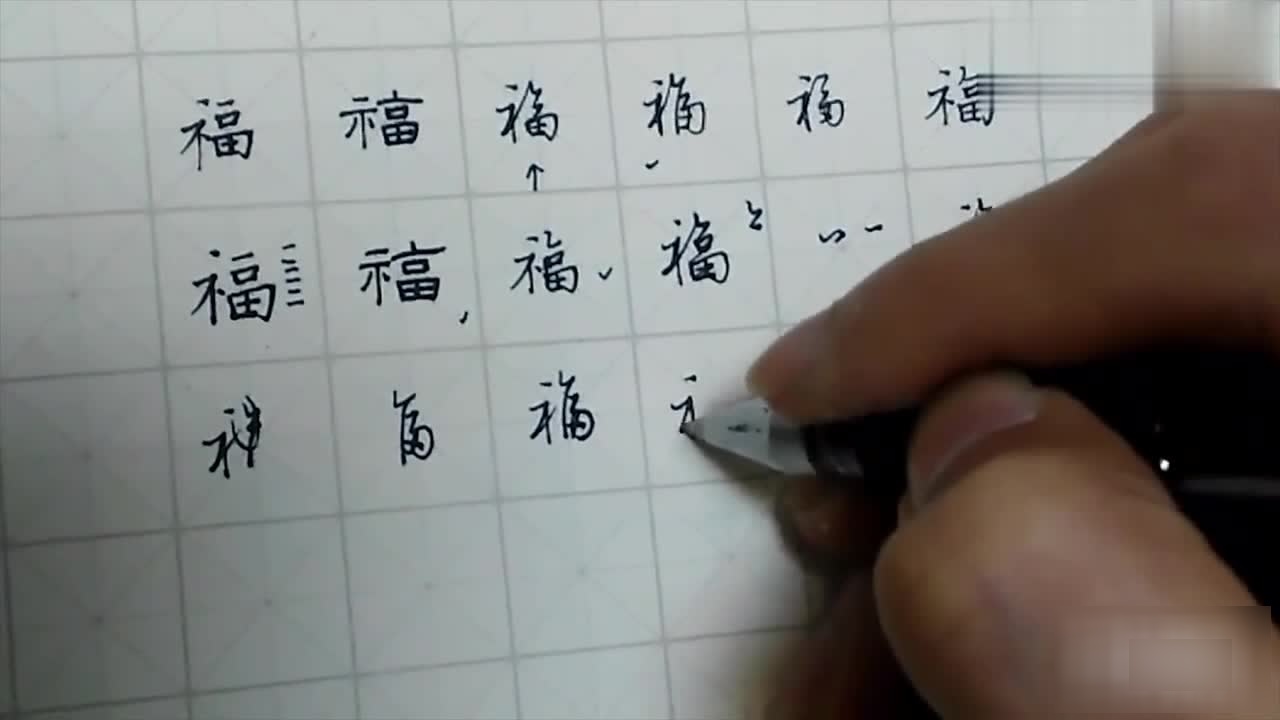 福 福 福 福 福 福
福 福 福 福
福